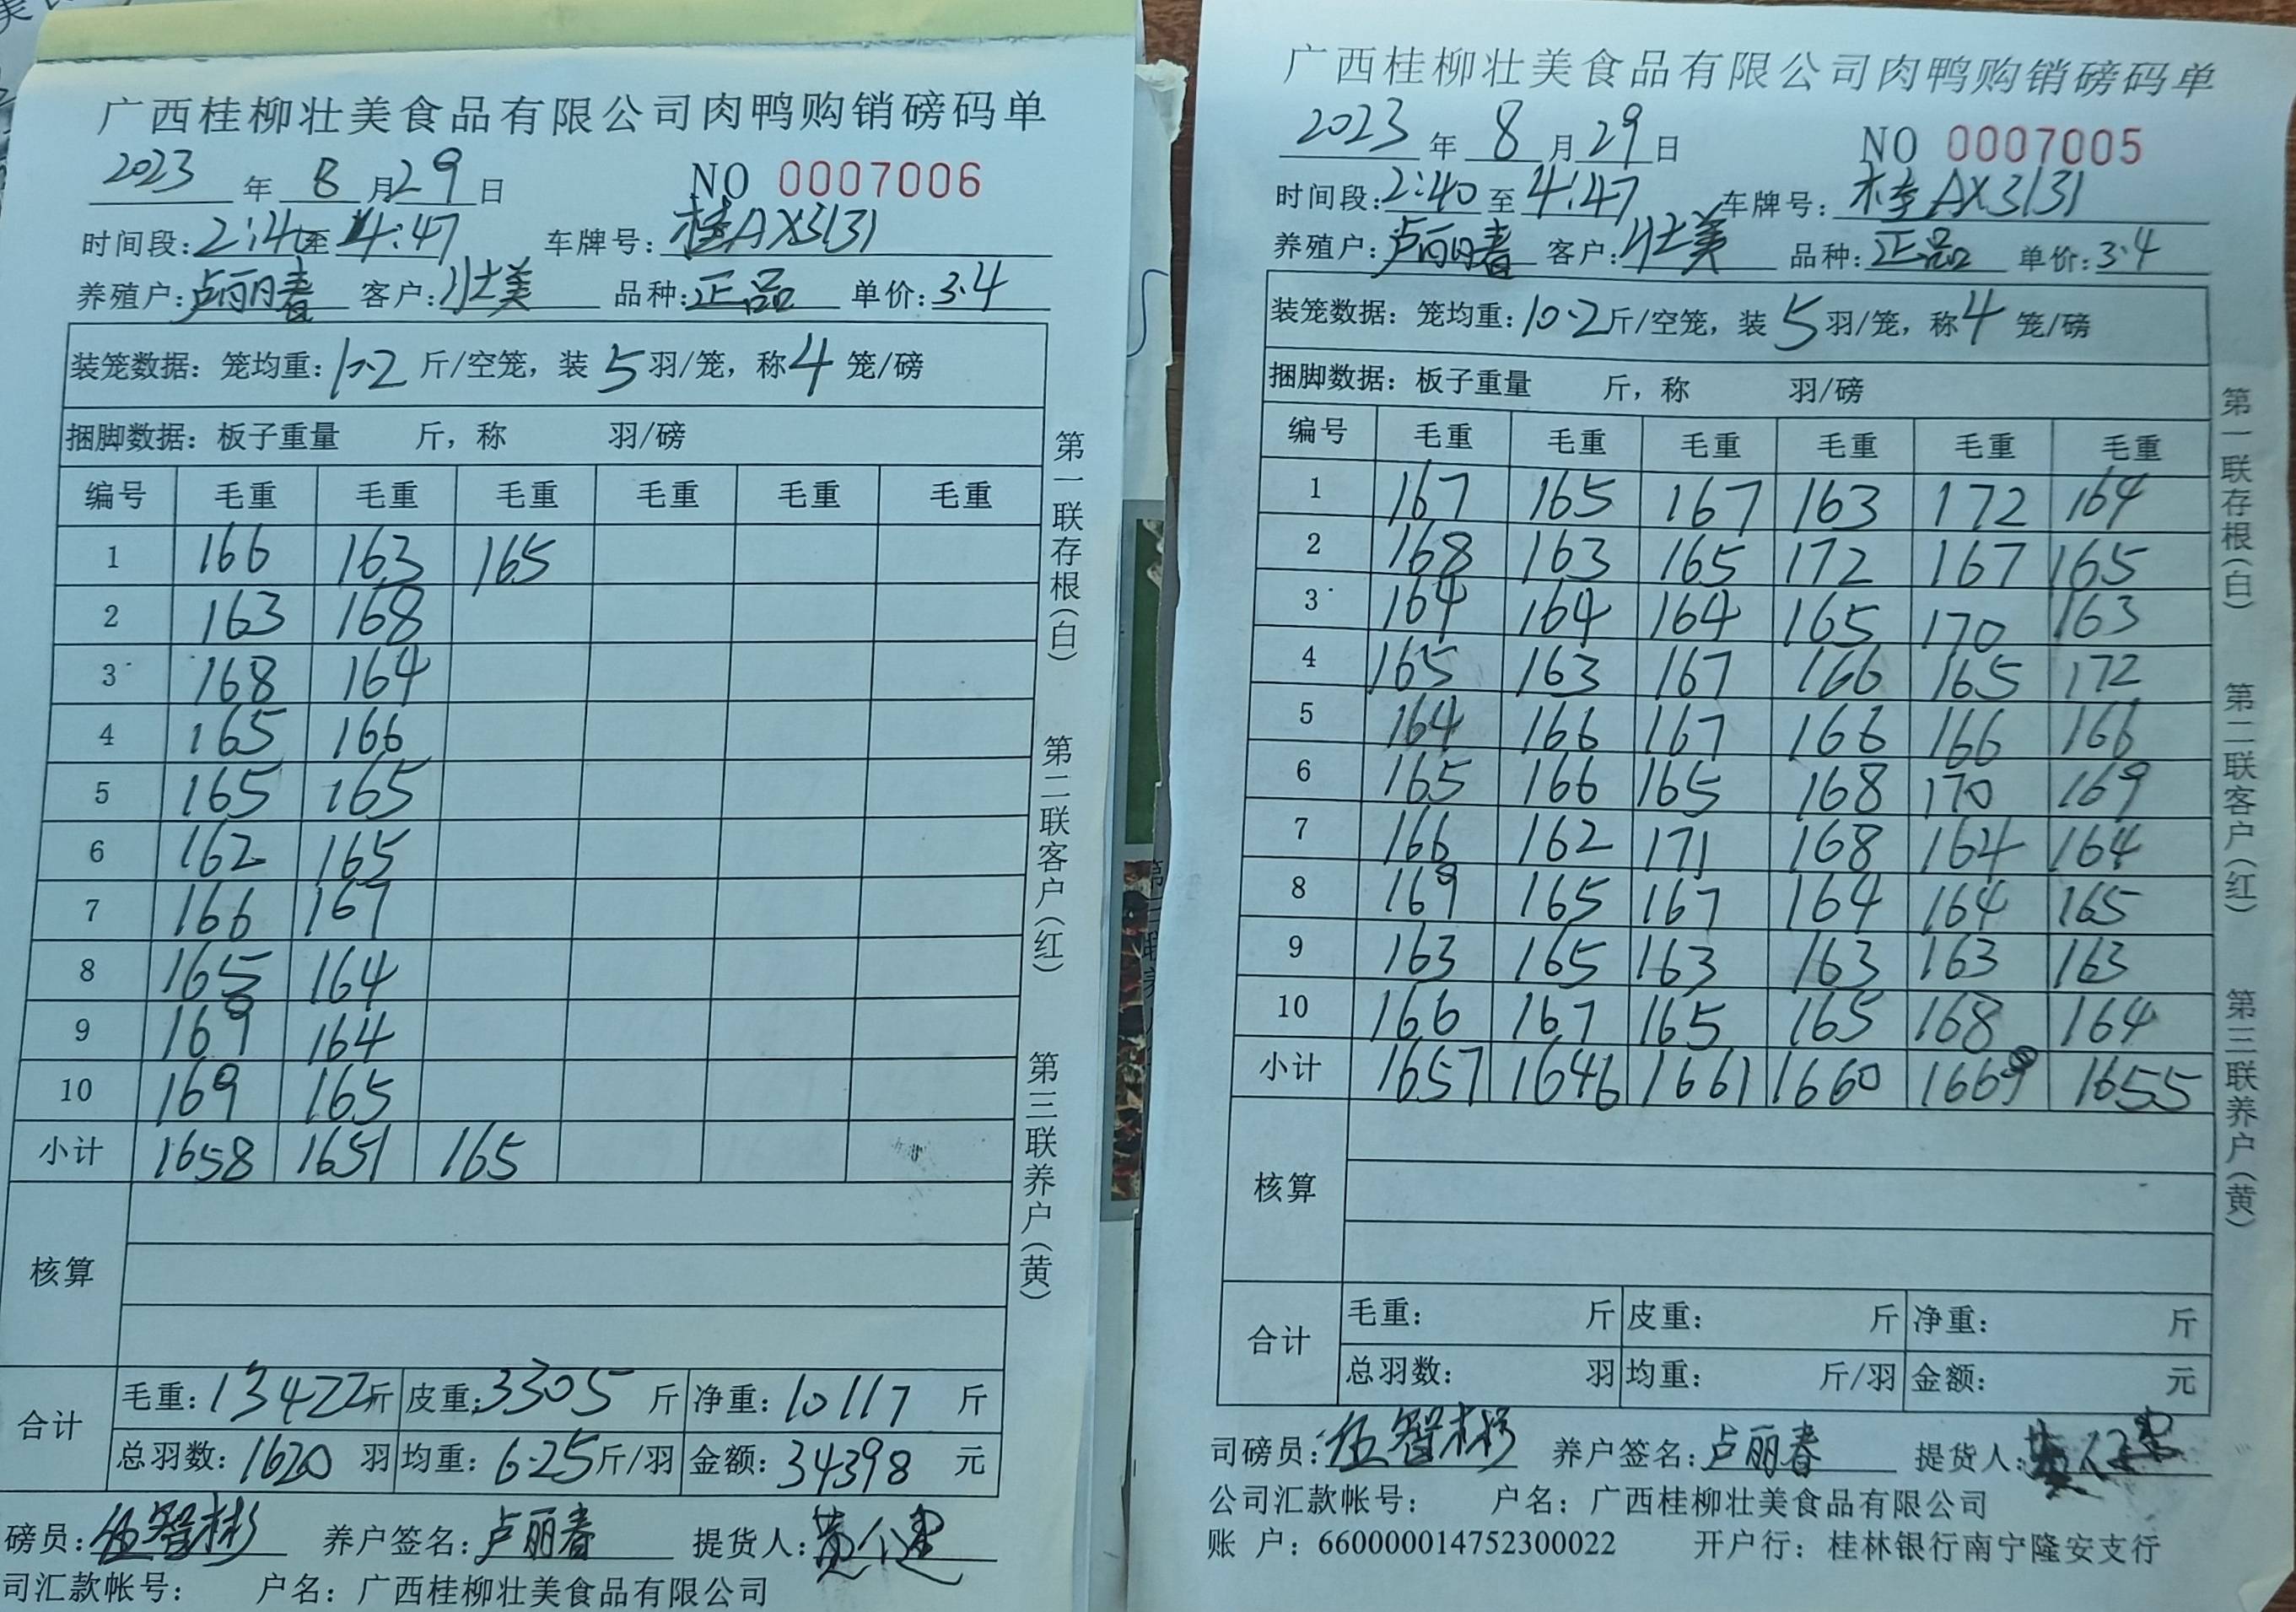 广西桂柳壮美食品有限公司肉鸭购销磅码单
2023 年 8 月 29 日 NO 0007006
时间段:2:40至 4:47 车牌号:桂AX3131
养殖户:卢丽春 客户:壮美 品种:正品 单价:3.4
装笼数据：笼均重:10.2 斤/空笼，装 5 羽/笼，称 4 笼/磅
捆脚数据：板子重量 斤，称 羽/磅
编号 毛重 毛重 毛重 毛重 毛重 毛重
1 166 163 165
2 163 168
3 168 164
4 165 166
5 165 165
6 162 165
7 166 167
8 165 164
9 169 164
10 169 165
小计 1658 1651 165
核算
合计
毛重:13422斤 皮重:3305 斤 净重:10117 斤
总羽数:1620 羽 均重:6.25斤/羽 金额:34398 元
磅员:伍智彬 养户签名:卢丽春 提货人:
司汇款帐号： 户名：广西桂柳壮美食品有限公司
第一联存根(白) 第二联客户(红) 第三联养户(黄)
广西桂柳壮美食品有限公司肉鸭购销磅码单
2023 年 8 月 29 日 NO 0007005
时间段:2:40 至 4:47 车牌号:桂AX3131
养殖户:卢丽春 客户:壮美 品种:正品 单价:3.4
装笼数据：笼均重:10.2斤/空笼，装 5 羽/笼，称4 笼/磅
捆脚数据：板子重量 斤，称 羽/磅
编号 毛重 毛重 毛重 毛重 毛重 毛重
1 167 165 167 163 172 164
2 168 163 165 172 167 165
3 164 164 164 165 170 163
4 165 163 167 166 165 172
5 164 166 167 166 166 166
6 165 166 165 168 170 169
7 166 162 171 168 164 164
8 169 165 167 164 164 165
9 163 165 163 163 163 163
10 166 167 165 165 168 164
小计 1657 1646 1661 1660 1669 1655
核算
合计
毛重: 斤 皮重: 斤 净重: 斤
总羽数: 羽 均重: 斤/羽 金额: 元
司磅员:伍智彬 养户签名:卢丽春 提货人:
公司汇款帐号： 户名：广西桂柳壮美食品有限公司
账 户：660000014752300022 开户行：桂林银行南宁隆安支行
第一联存根(白) 第二联客户(红) 第三联养户(黄)